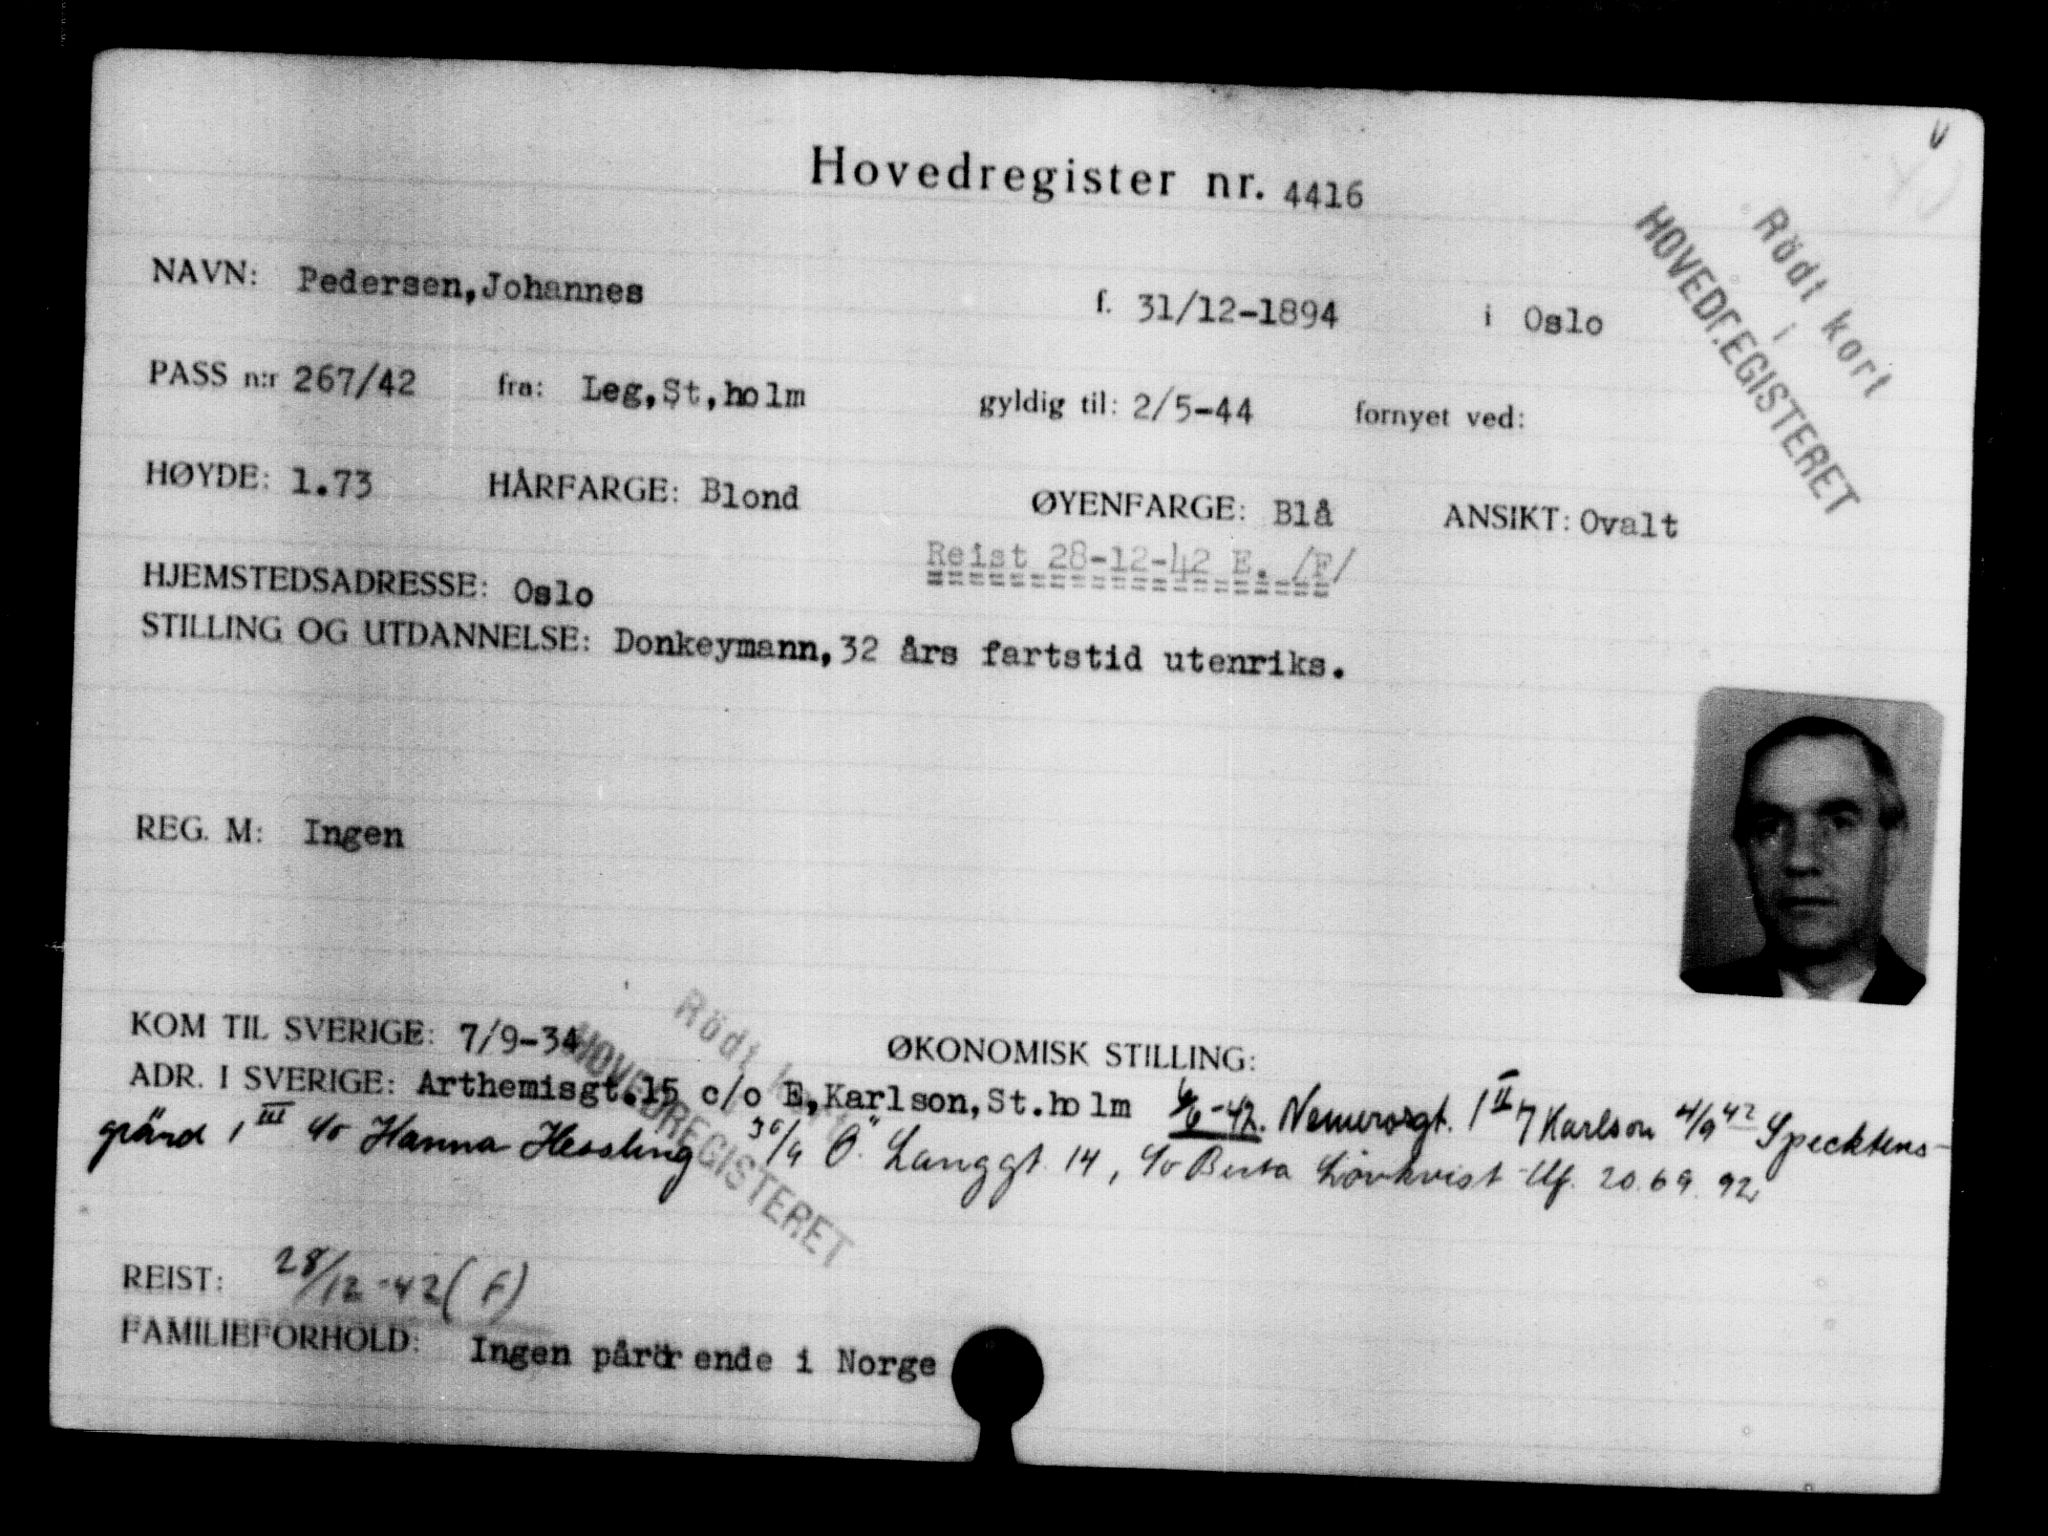 Hovedregister nr. 4416
Rödt kort
i
HOVEDREGISTERET
NAVN: Pedersen,Johannes f. 31/12-1894 i Oslo
PASS n:r 267/42 fra: Leg,St,holm gyldig til: 2/5-44 fornyet ved:
HØYDE: 1.73 HÅRFARGE: Blond ØYENFARGE: Blå ANSIKT: Ovalt
Reist 28-12-42 E. /F/
HJEMSTEDSADRESSE: Oslo
STILLING OG UTDANNELSE: Donkeymann,32 års fartstid utenriks.
REG. M: Ingen
KOM TIL SVERIGE: 7/9-34 ØKONOMISK STILLING:
Rödt kort
HOVEDREGISTERET
ADR. I SVERIGE: Arthemisgt.15 c/o E,Karlson,St.holm 6/6-42. Nemerorgt. 1 II 7 Karlson 4/9 42 Specktens-
gränd 1 III c/o Hanna Hessling 30/9 Ö. Langgt. 14, c/o Berta Lövkvist tlf. 20.69.92,
REIST: 28/12-42 (F)
FAMILIEFORHOLD: Ingen pårörende i Norge